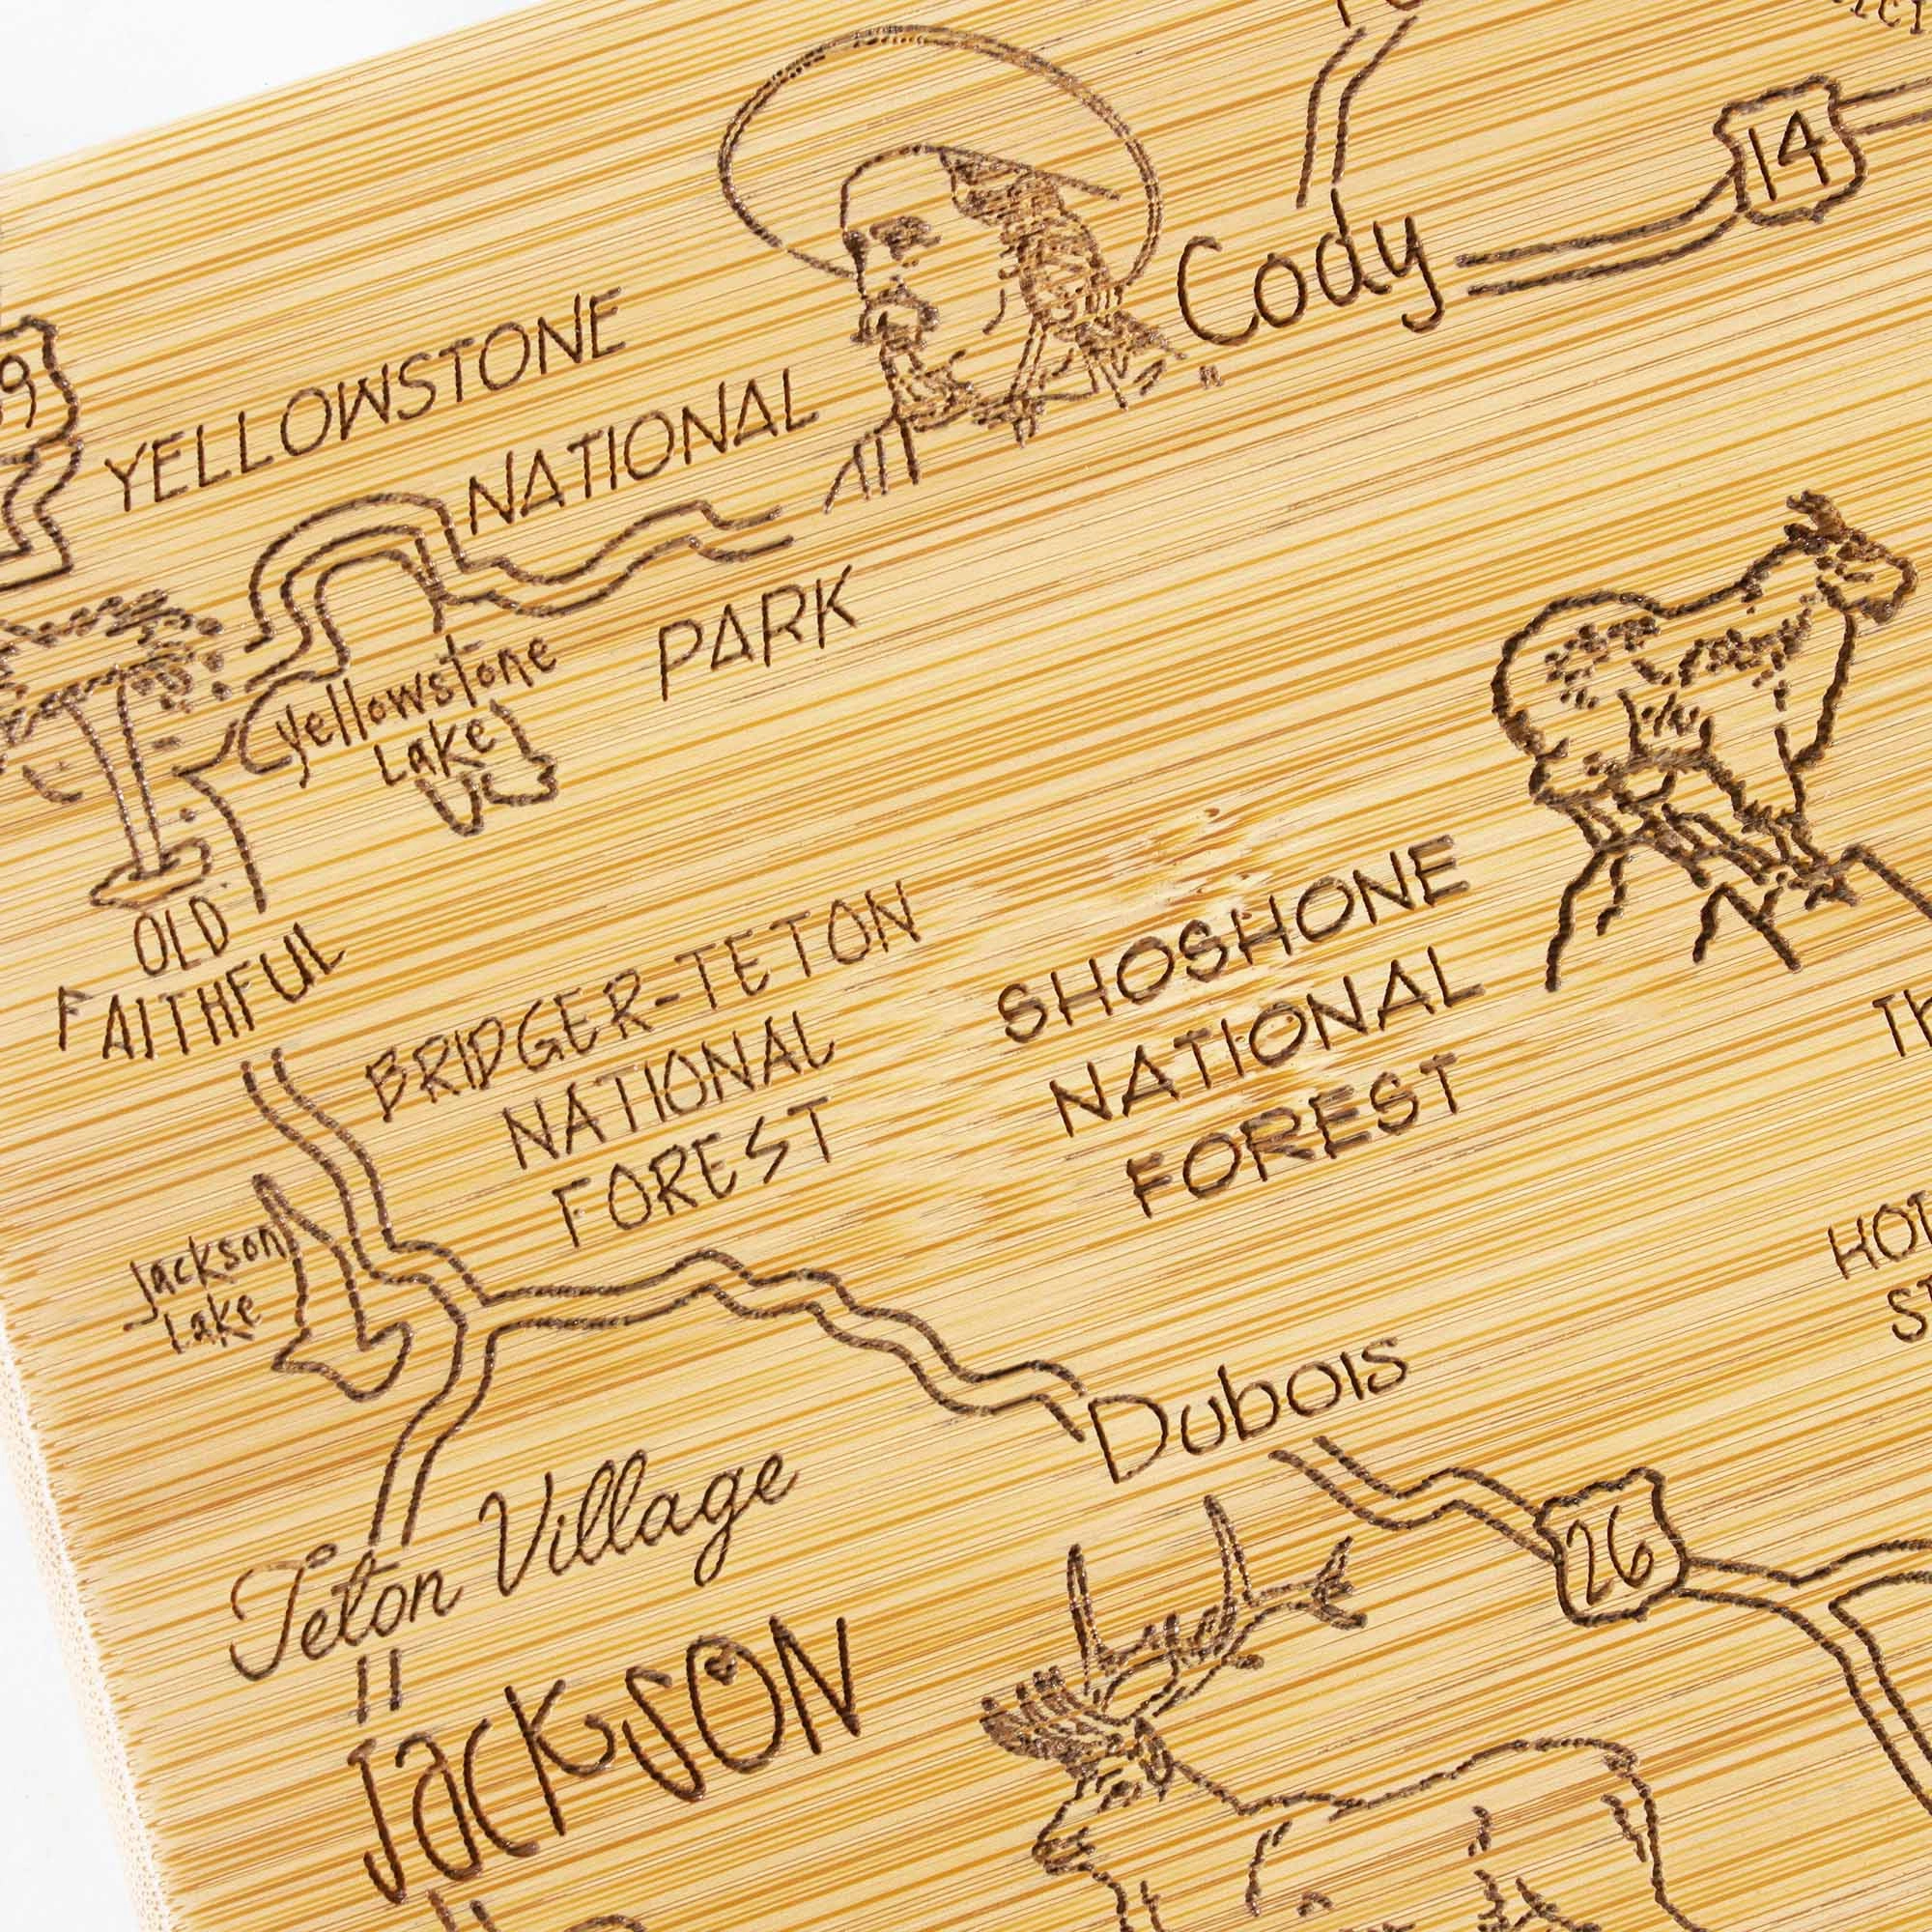 14
Cody
YELLOWSTONE
NATIONAL
PARK
Yellowstone
Lake
OLD
FAITHFUL
BRIDGER-TETON
NATIONAL
FOREST
SHOSHONE
NATIONAL
FOREST
Jackson
Lake
HOT
Dubois
26
Teton Village
JACKSON